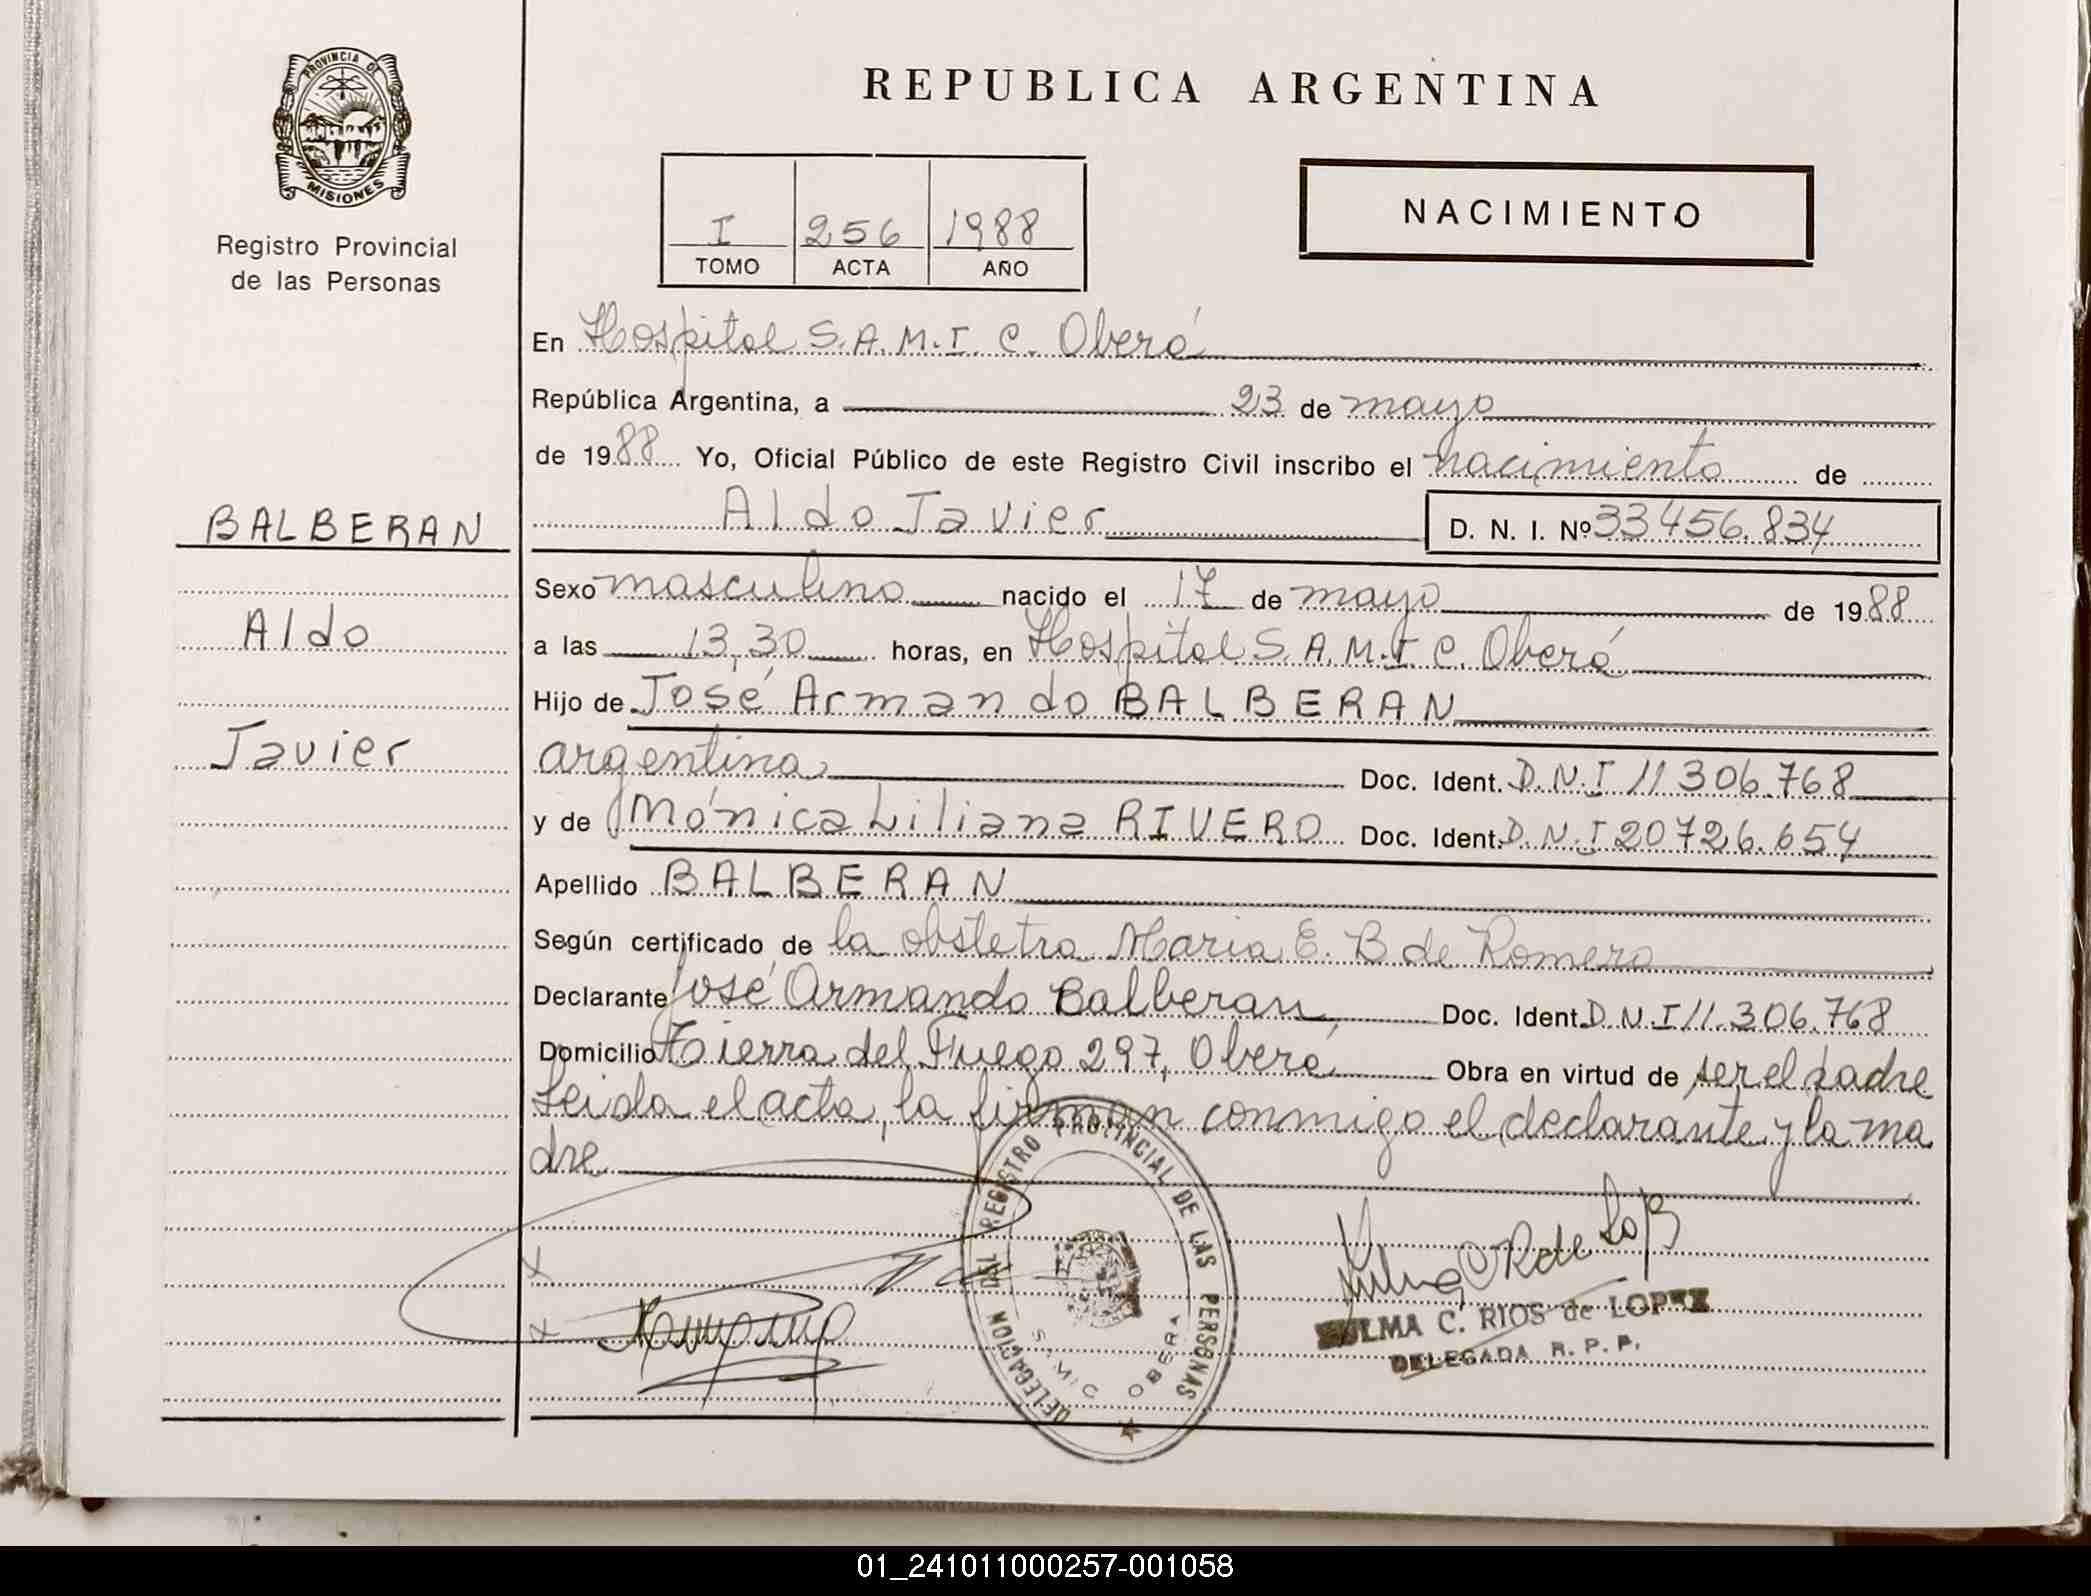 PROVINCIA DE
MISIONES
Registro Provincial
de las Personas
REPUBLICA ARGENTINA
I 256 1988
TOMO ACTA AÑO
NACIMIENTO
En Hospital S.A.M.I.C. Oberá
República Argentina, a 23 de mayo
de 1988 Yo, Oficial Público de este Registro Civil inscribo el nacimiento de
Aldo Javier D. N. I. Nº 33456.834
BALBERAN
Aldo
Javier
Sexo masculino nacido el 17 de mayo de 1988
a las 13,30 horas, en Hospital S.A.M.I.C. Oberá
Hijo de José Armando BALBERAN
argentina Doc. Ident. D.N.I 11306.768
y de Mónica Liliana RIVERO Doc. Ident. D.N.I 20726.654
Apellido BALBERAN
Según certificado de la obstetra Maria E. B de Romero
Declarante José Armando Balberan, Doc. Ident. D.N.I 11.306.768
Domicilio Tierra del Fuego 297, Oberá Obra en virtud de ser el padre
Leida el acta, la firman conmigo el declarante y la ma
dre
DELEGACION DEL REGISTRO PROVINCIAL DE LAS PERSONAS
SAMIC OBERA
ZULMA C. RIOS de LOPEZ
DELEGADA R. P. P.
01_241011000257-001058